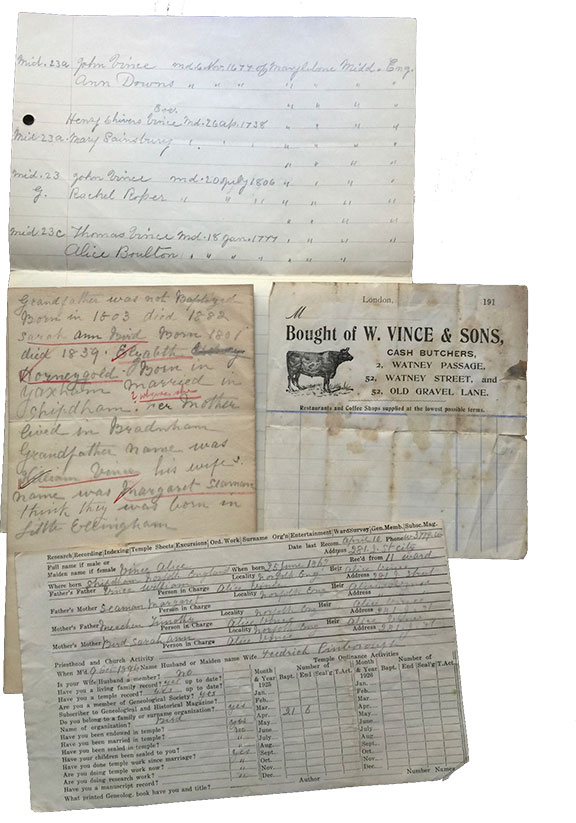 Mid. 23a John Vince md 6 Nov 1677 of Marylebone Midd. Eng.
Ann Downs " " " " " " "
Soc.
Henry Chivers Vince Md. 26 ap. 1738 " " "
Mid 23a. Mary Sainsbury " " " " "
Mid. 23 John Vince md. 20 July 1806 " " "
G. Rachel Roper " " " " " "
Mid 23c Thomas Vince Md. 18 Jan. 1777 " " "
Alice Boulton " " " " " "
Grandfather was not Baptized
Born in 1803 died 1882
Sarah ann Bird Born 1801
died 1839. Elizabeth
Horneygold Born in
Yaxham married in
Shipdham. her Mother
lived in Bradnham
Grandfather name was
William Vince his wife's
name was Margaret Seaman
think they was born in
Little Ellingham
London, 191
M
Bought of W. VINCE & SONS,
CASH BUTCHERS,
2, WATNEY PASSAGE,
52, WATNEY STREET, and
52, OLD GRAVEL LANE.
Restaurants and Coffee Shops supplied at the lowest possible terms.
Research Recording Indexing Temple Sheets Excursions Ord. Work Surname Org'n Entertainment Ward Survey Gen. Memb. Subsc. Mag.
Date last Recom. April 18 Phone
Full name if male or
Maiden name if female Vince Alice Address
Where born Shipdham Norfolk England When born 25 June Rec'd from 11 Ward
Father's Father Vince William Person in Charge Locality Norfolk Eng Heir Address
Father's Mother Seaman Margaret Person in Charge Locality Norfolk Eng Heir Address
Mother's Father Meachen Timothy Person in Charge Locality Norfolk Eng Heir Address
Mother's Mother Bird Sarah Ann Person in Charge Locality Norfolk Eng Heir Address
Priesthood and Church Activity
When M'd Name Husband or Maiden name Wife
Temple Ordinance Activities
Is your Wife/Husband a member? no
Have you a living family record? yes up to date?
Have you a temple record? yes up to date?
Are you a member of Genealogical Society? yes
Subscriber to Genealogical and Historical Magazine? yes
Do you belong to a family or surname organization?
Name of organization? Bird
Have you been endowed in temple? yes
Have you been married in temple?
Have you been sealed in temple?
Have your children been sealed to you?
Have you done temple work since marriage? yes
Are you doing temple work now? "
Are you doing research work? "
Have you a manuscript record? "
What printed Geneolog. book have you and title? Author
Month & Year 1925 Number of Bapt. End Seal'g T. Act. Month & Year 1926 Number of Bapt. End Seal'g T. Act.
Jan. Jan.
Feb. Feb.
Mar. Mar.
Apr. 31 6 Apr.
May. May.
June June
July July
Aug. Aug.
Sept. Sept.
Oct. Oct.
Nov. Nov.
Dec. Dec.
Number Names